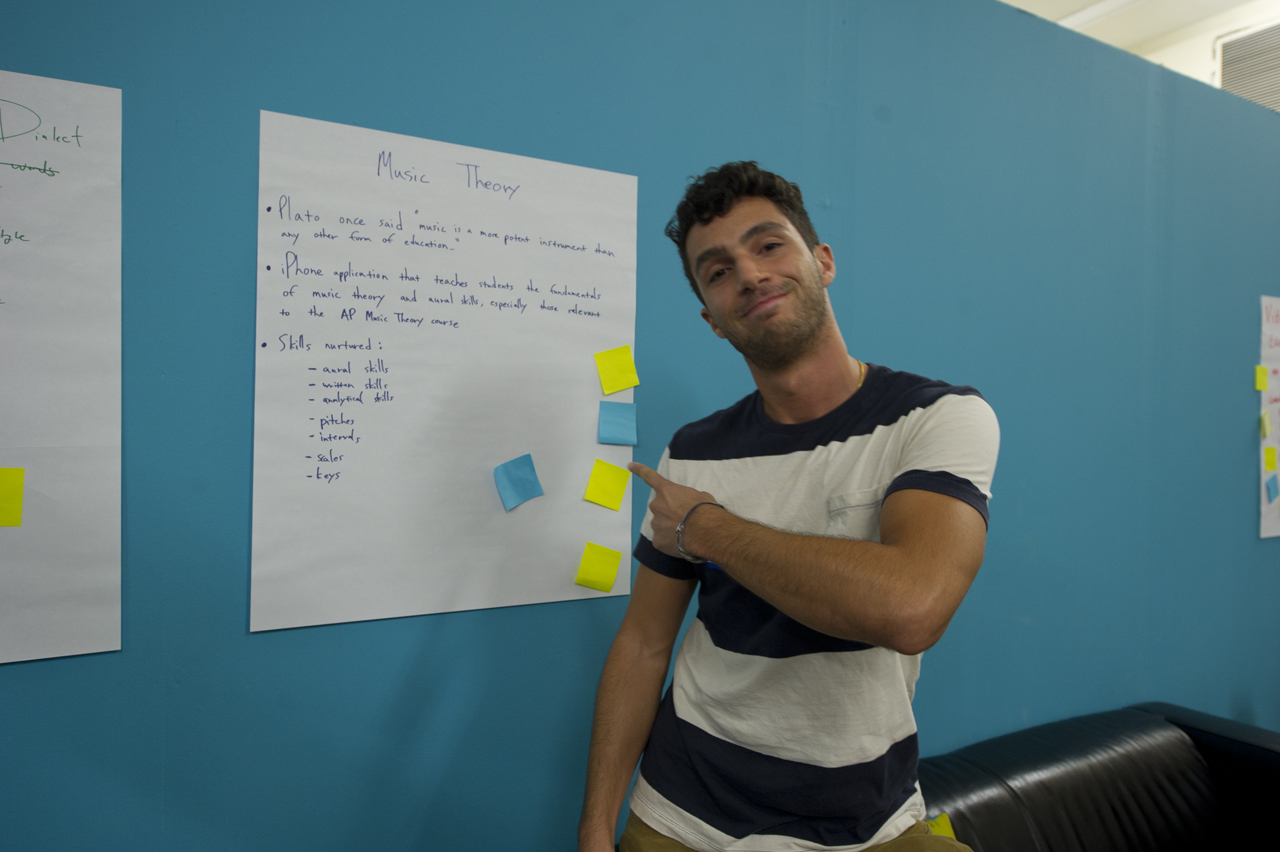 Dialect
words
Music Theory
• Plato once said "music is a more potent instrument than
any other form of education."
• iPhone application that teaches students the fundamentals
of music theory and aural skills, especially those relevant
to the AP Music Theory course
• Skills nurtured:
- aural skills
- written skills
- analytical skills
- pitches
- intervals
- scales
- keys